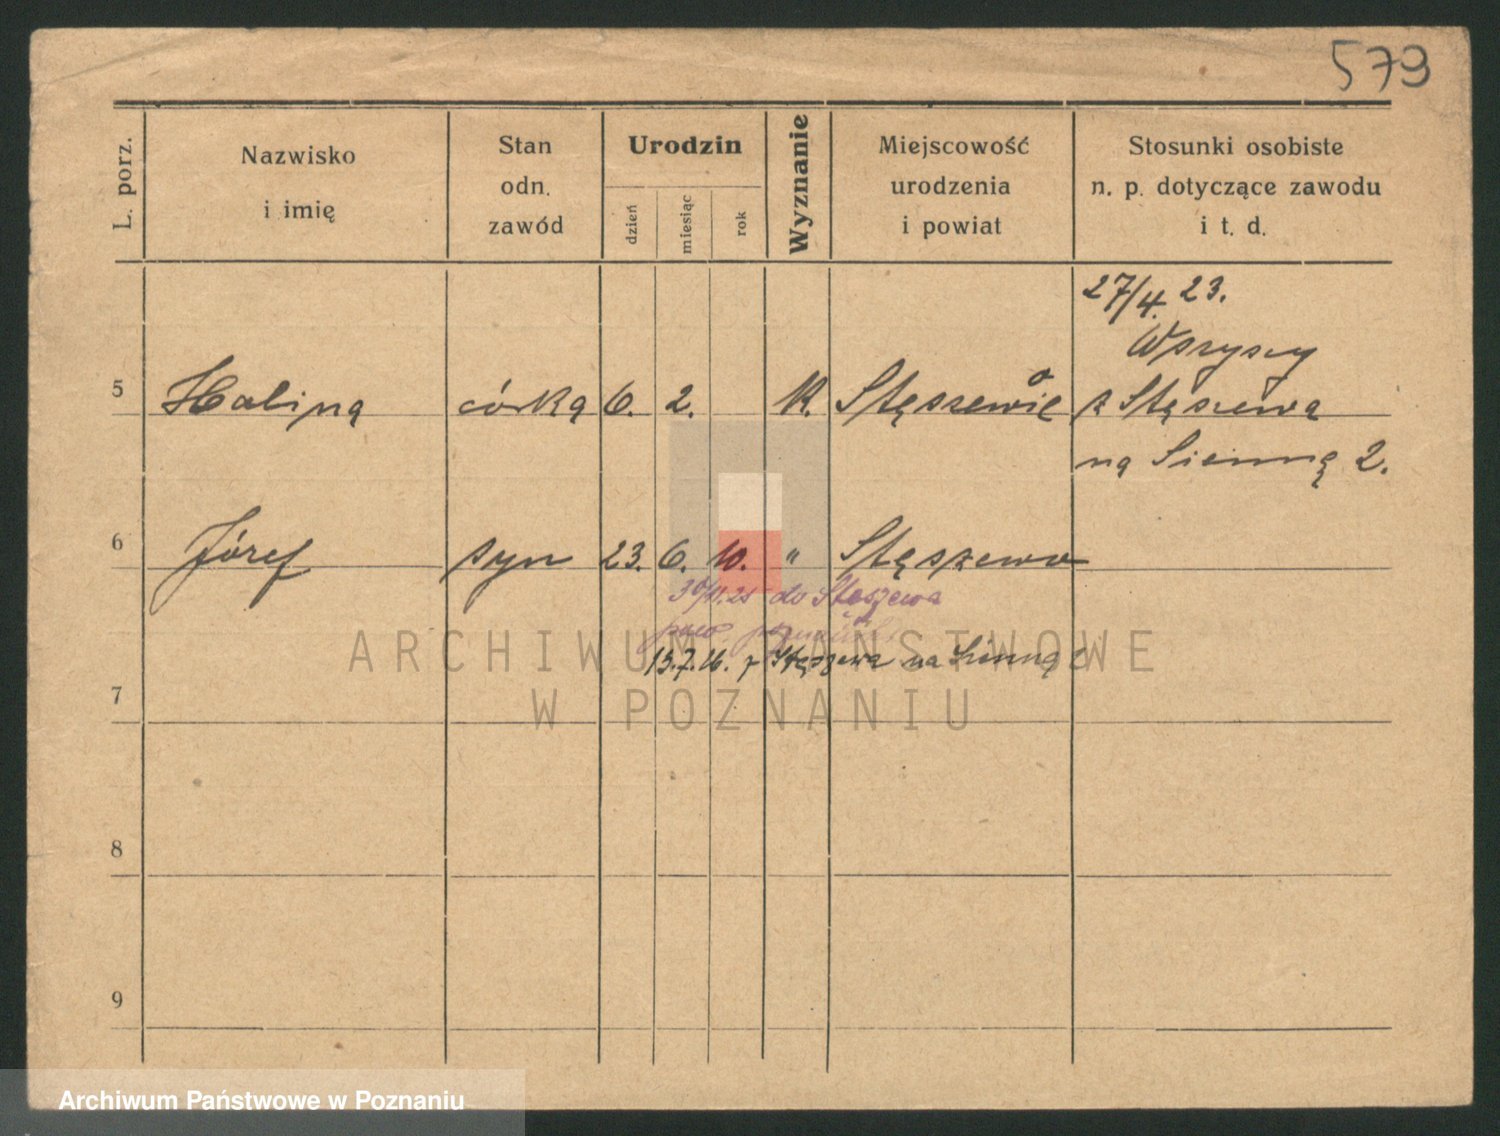 579
L. porz.
Nazwisko
i imię
Stan
odn.
zawód
Urodzin
dzień
miesiąc
rok
Wyznanie
Miejscowość
urodzenia
i powiat
Stosunki osobiste
n. p. dotyczące zawodu
i t. d.
27/4. 23.
Wszyscy
5 Halina córka 6. 2. K. Stęszewie z Stęszewa
na Sienną 2.
6 Józef syn 23. 6. 10. " Stęszewo
30/11.25 do Stęszewa
pow.
13.7.26. z Stęszewa na Sienną
7
8
9
ARCHIWUM PAŃSTWOWE
W POZNANIU
Archiwum Państwowe w Poznaniu